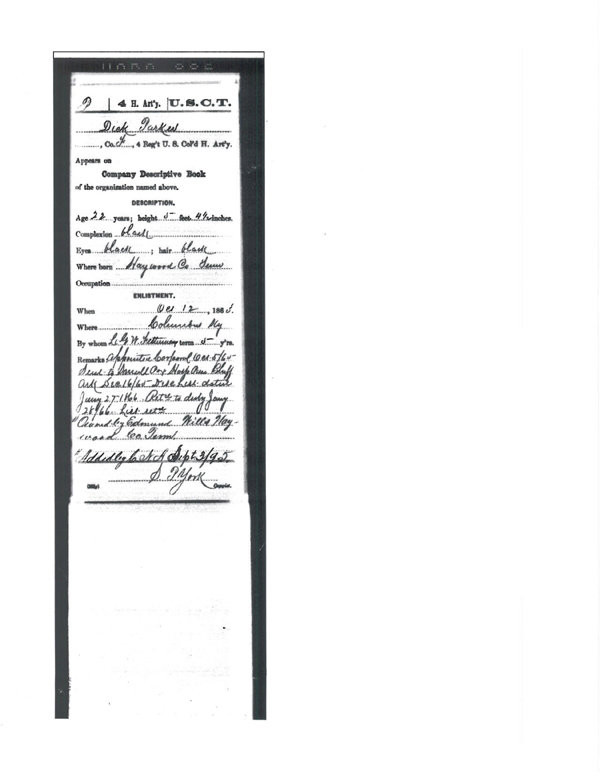 P | 4 H. Art'y. | U.S.C.T.
Dick Parker
, Co. F, 4 Reg't U. S. Col'd H. Art'y.
Appears on
Company Descriptive Book
of the organization named above.
DESCRIPTION.
Age 22 years; height 5 feet 4½ inches.
Complexion black
Eyes black ; hair black
Where born Haywood Co Tenn
Occupation
ENLISTMENT.
When 12 , 186
Where Columbus Ky
By whom W. term 5 y'rs.
Remarks Appointed Corporal Oct 5/65
Sent to Small Pox Hosp Pine Bluff
Ark Dec 16/65 Desc List dated
Jany 27. 1866 Ret'd to duty Jany
28/66. List ret'd
Owned by Edmund Wills Hay-
wood Co. Tenn.
Added by Sept 3/95
York
Copyist.